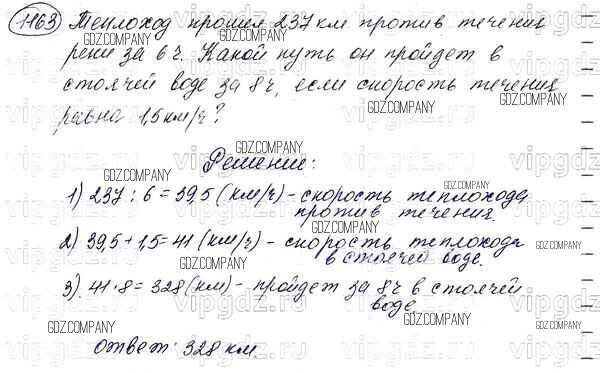 1163 Теплоход прошел 237 км против течения
реки за 6 ч. Какой путь он пройдет в
стоячей воде за 8 ч, если скорость течения
равна 1,5 км/ч?
Решение:
1) 237 : 6 = 39,5 (км/ч) - скорость теплохода
против течения
2) 39,5 + 1,5 = 41 (км/ч) - скорость теплохода
в стоячей воде.
3) 41 · 8 = 328 (км) - пройдет за 8 ч в стоячей
воде
Ответ: 328 км.